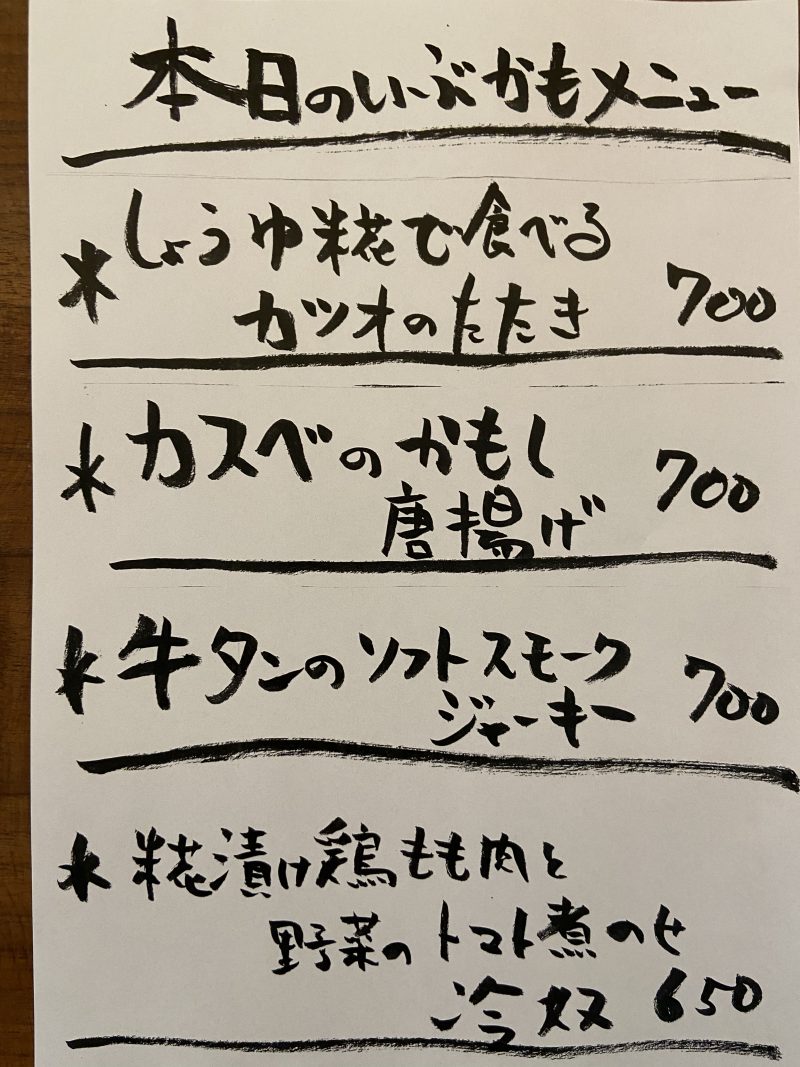 本日のいーぶいかもメニュー
*しょうゆ糀で食べる
カツオのたたき 700
*カスベのかもし
唐揚げ 700
*牛タンのソフトスモーク
ジャーキー 700
*糀漬け鶏もも肉と
野菜のトマト煮のせ
冷奴 650